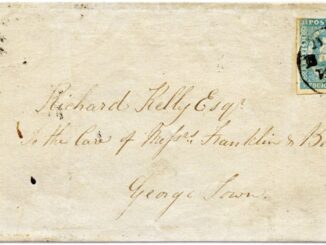 Richard Kelly Esqr
To the Care of Messrs Franklin &
George Town.